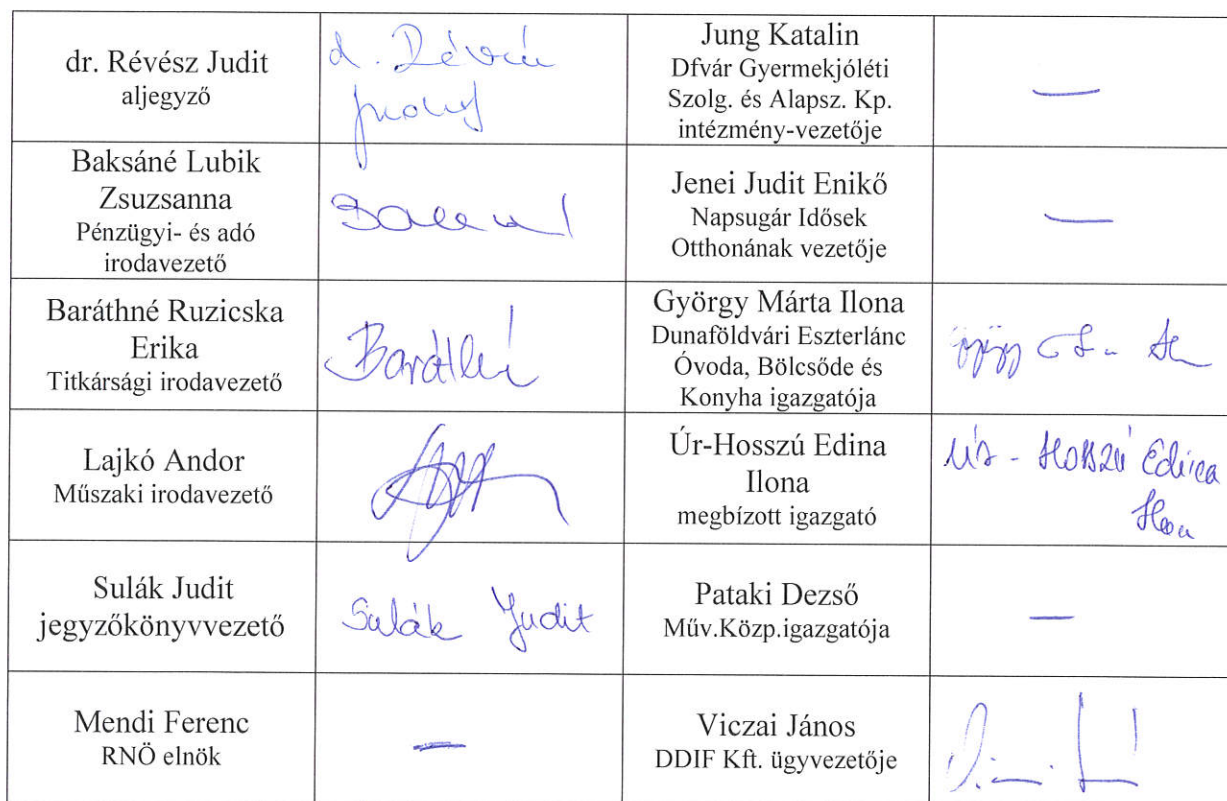 dr. Révész Judit
aljegyző
d. Révész
Jung Katalin
Dfvár Gyermekjóléti
Szolg. és Alapsz. Kp.
intézmény-vezetője
—
Baksáné Lubik
Zsuzsanna
Pénzügyi- és adó
irodavezető
Jenei Judit Enikő
Napsugár Idősek
Otthonának vezetője
—
Baráthné Ruzicska
Erika
Titkársági irodavezető
Baráthné
György Márta Ilona
Dunaföldvári Eszterlánc
Óvoda, Bölcsőde és
Konyha igazgatója
Lajkó Andor
Műszaki irodavezető
Úr-Hosszú Edina
Ilona
megbízott igazgató
Úr - Hosszú Edina
Ilona
Sulák Judit
jegyzőkönyvvezető
Sulák Judit
Pataki Dezső
Műv.Közp.igazgatója
—
Mendi Ferenc
RNÖ elnök
—
Viczai János
DDIF Kft. ügyvezetője